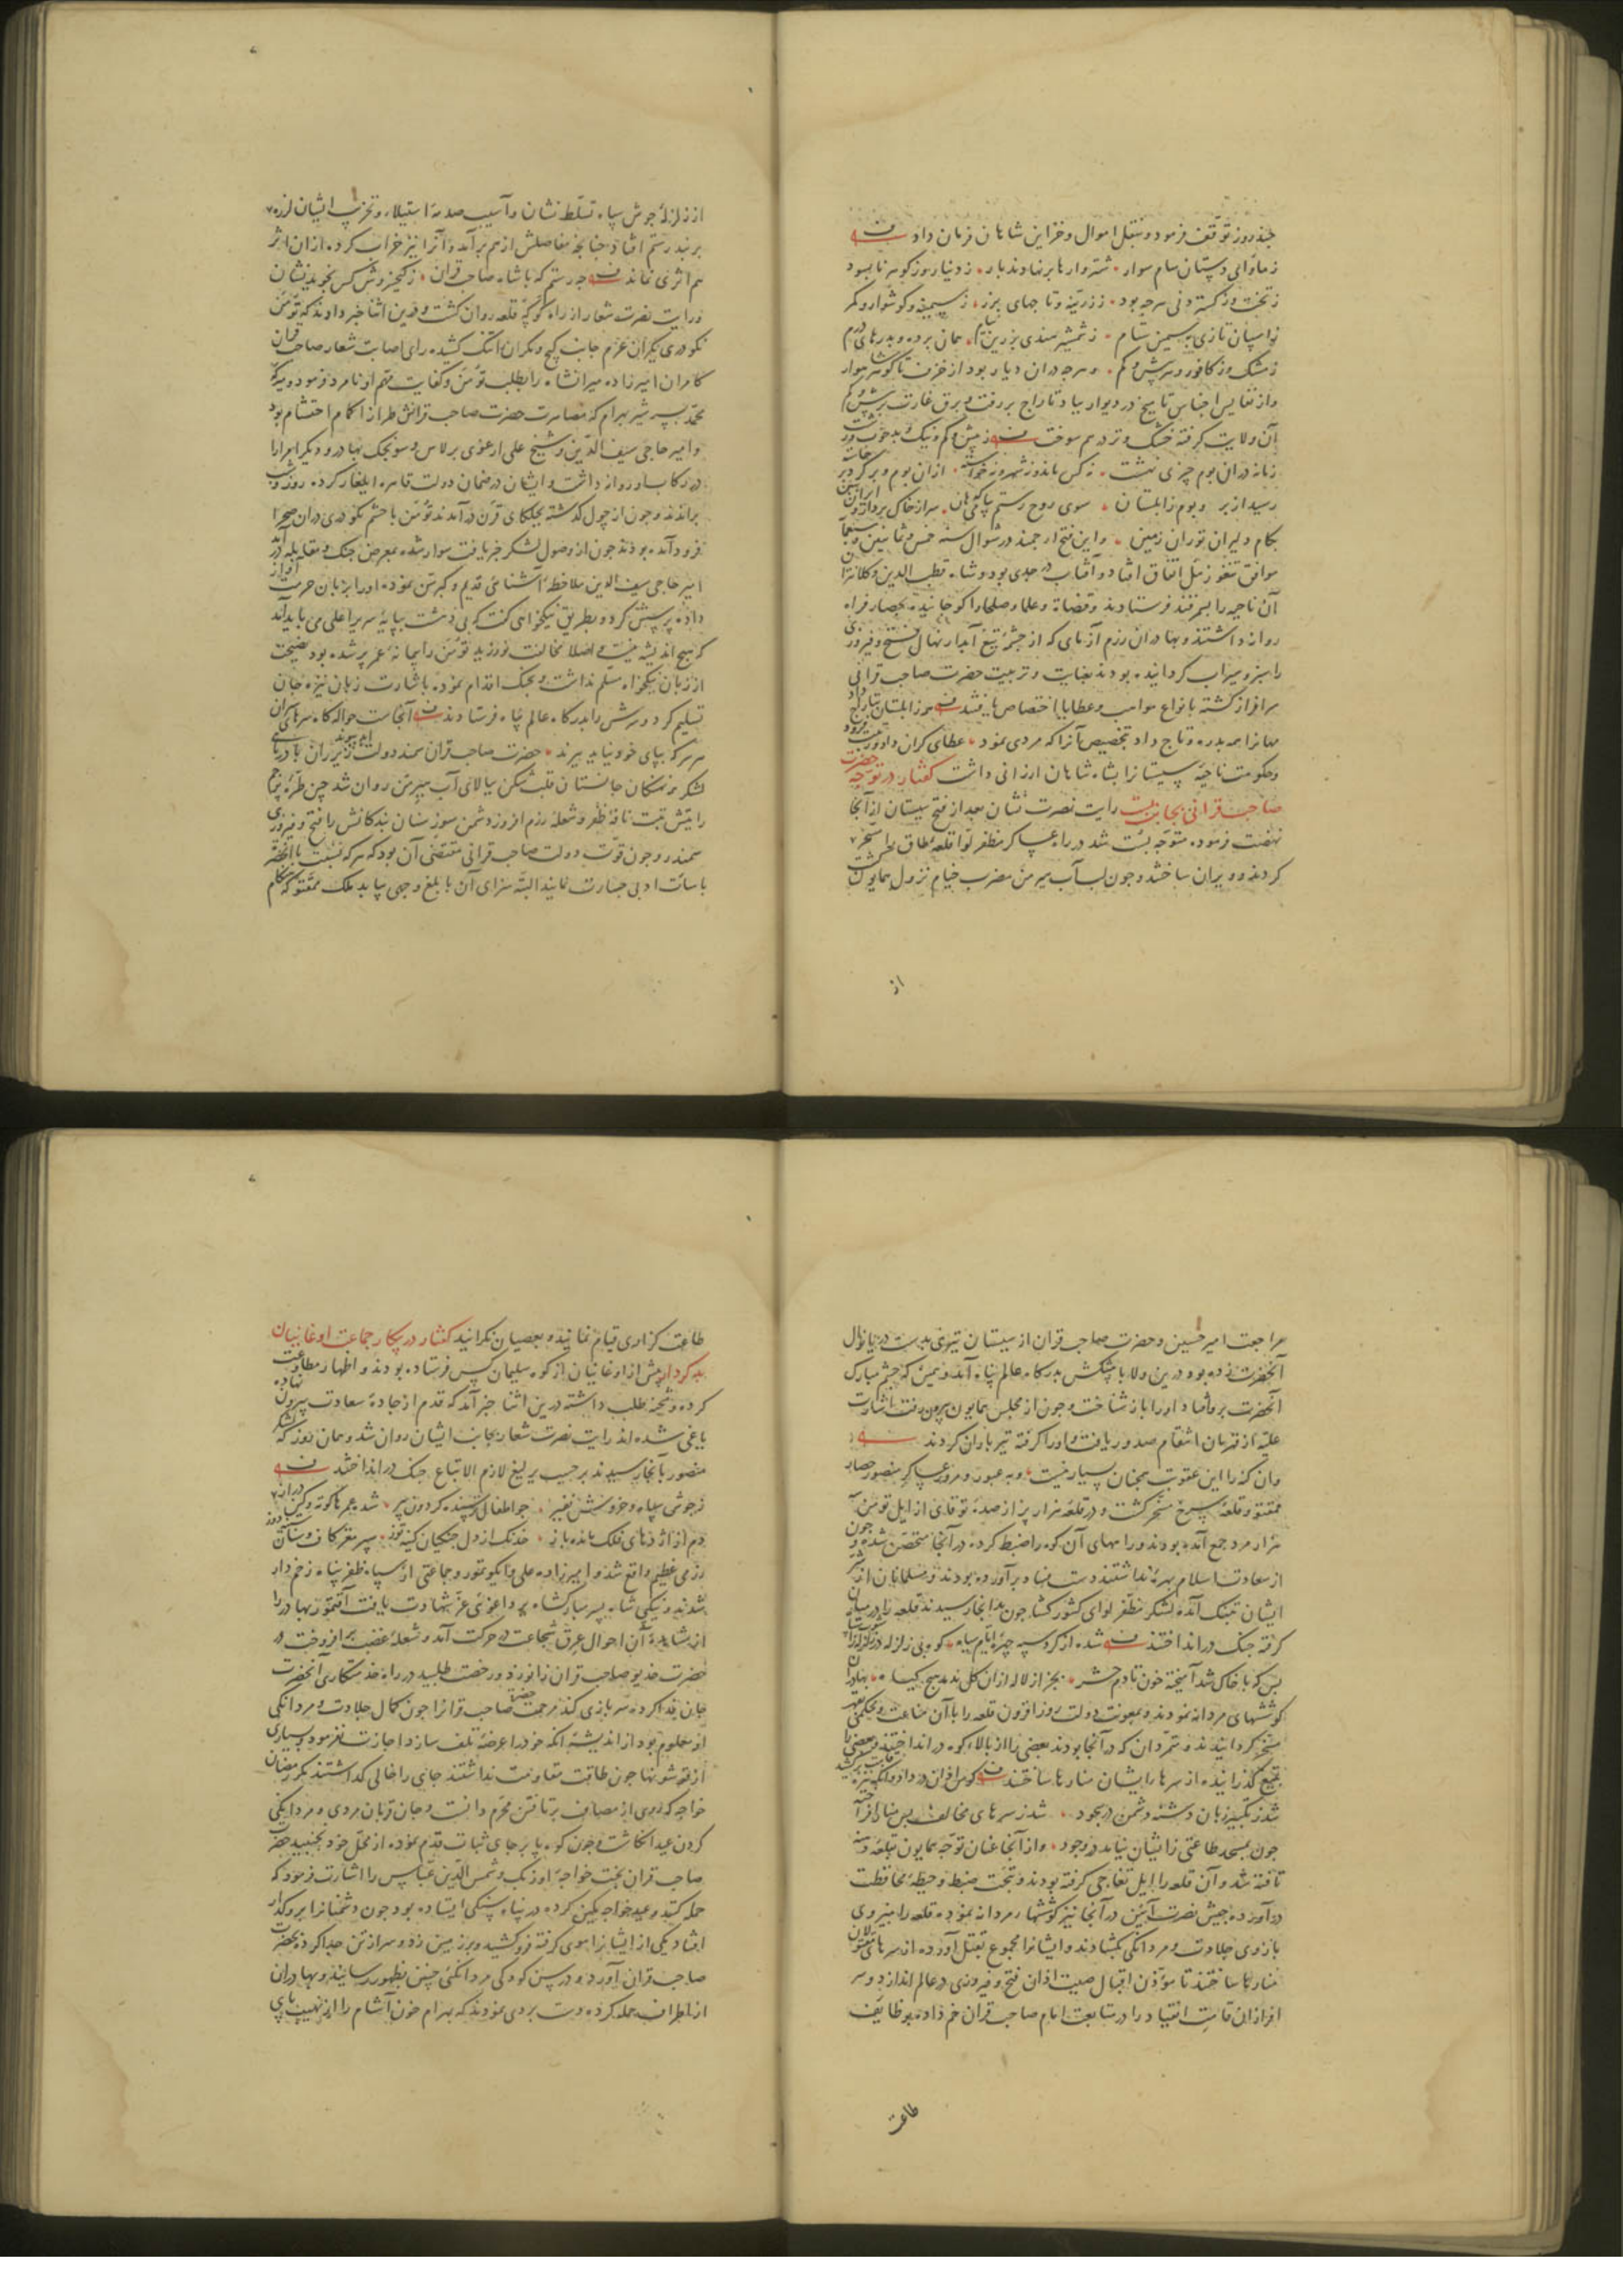 چند روز توقف فرمود و بنقل اموال و خزاین شاهان فرمان داد
ز ماوای دستان سام سوار شتروارها برنهادند بار ز دینار وز گوهر نابسود
ز تخت وز گستردنی هرچه بود ز زرینه و تاجهای بزر ز سیمینه و گوشوار و کمر
ز اسپان تازی بسیمین ستام ز شمشیر هندی بزرین نیام همان برده و بدرهای درم
ز مشک وز کافور و هر بیش و کم و هرچه دران دیار بود از خزف تا گوهر شهوار
و از نفایس اجناس تا میخ در و دیوار بباد تاراج بررفت و برق غارت
آن ولایت گرفته خشک و تر در هم سوخت ز بیش و کم و نیک و بد خوب و زشت
زمانه دران بوم چیزی نهشت نه کس ماند و نه شهر و نه خواسته ازان بوم و بر گرد بر خاسته
رسید از بر و بوم زابلستان سوی روح رستم سر از خاک بردار و ایران ببین
بکام دلیران توران زمین و این فتح ارجمند در شوال سنه خمس و ثمانین و سبعمائه
موافق تنغوز ئیل اتفاق افتاد و آفتاب در جدی بود و شاه قطب الدین و کلانتران
آن ناحیه را بسمرقند فرستادند و قضاة و علما و صلحا را کوچانیده بحصار فراه
روانه داشتند و بهادران رزم آزمای که از چشمهٔ تیغ آبدار نهال فتح و فیروزی
را سبز و سیراب گردانیده بودند بعنایت و تربیت حضرت صاحب قرانی
سرافراز گشته بانواع مواهب و عطایا اختصاص یافتند
مهانرا همه بدره و تاج داد بتخصیص آنرا که مردی نمود عطای گران داد
و حکومت ناحیهٔ سیستانرا بشاه شاهان ارزانی داشت گفتار در توجه حضرت
صاحب قرانی بجانب بست رایت نصرت نشان بعد از فتح سیستان از آنجا
نهضت فرموده متوجه بست شد در راه عساکر مظفر لوا قلعهٔ طاق را مسخر
کردند و ویران ساختند و چون لب آب هیرمن مضرب خیام نزول همایون گشت
از
از زلزلهٔ جوش سپاه تسلط نشان و آسیب صدمهٔ استیلا و تخریب ایشان لرزه
بر بند رستم افتاد چنانچه مفاصلش از هم برآمد و آنرا نیز خراب کرده ازان اثر
هم اثری نماند چه رستم که با شاه صاحب قران ز کیخسروش کس نجوید نشان
و رایت نصرت شعار از راه کوکه قلعه روان گشت و درین اثنا خبر دادند که تومن
نکودری یکران عزم جانب کیج و مکران تنگ کشیده رای اصابت شعار صاحب قران
کامران امیرزاده میرانشاه را بطلب تومن و کفایت مهم او نامزد فرمود و میرک
محمد پسر شیر بهرام که بمصاهرت حضرت صاحب قرانش طراز اکام احتشام بود
و امیر حاجی سیف الدین و شیخ علی ارغوی برلاس و سونجک بهادر و دیگر امرا را
در رکاب او روانه داشت و ایشان در ضمان دولت قاهره ایلغار کرده روز و شب
براندند و چون از چول گذشته بجلگای قرن درآمدند تومن با حشم نکودری دران صحرا
فرود آمده بودند چون از وصول لشکر خبر یافت سوار شده بمعرض جنگ و مقابله درآمد
امیر حاجی سیف الدین ملاحظهٔ آشنائی قدیم و کبر سن نموده او را بزبان حرمت آواز
داده پرسش کرد و بطریق نیکخواهی گفت که بی دهشت بپایهٔ سریر اعلی می باید آمد
که هیچ اندیشه نیست و اصلا مخالفت نورزید تومن را پیمانهٔ عمر پر شده بود نصیحت
از زبان نیکخواه مسلم نداشت و بجنگ اقدام نموده باشارت زبان نیزه جان
تسلیم کرد و سرش را بدرگاه عالم پناه فرستادند آنجاست حواله گاه سرهای سران
هر سر که بپای خود نیاید ببرند حضرت صاحب قران سمند دولت زیر ران با دریای
لشکر و نهنگان جانستان قلب شکن ببالای آب هیرمن روان شد چین طرهٔ پرچم
رایتش تبت نافهٔ ظفر و شعلهٔ رزم افروز دشمن سوز سنان بندگانش را فتح و فیروزی
سمندر و چون قوت دولت صاحب قرانی مقتضی آن بود که هر که نسبت با آنحضرت
باساءت ادبی جسارت نماید البته سزای آن بابلغ وجهی بیابد ملک ممقتو که هنگام
مراجعت امیر حسین و حضرت صاحب قران از سیستان تیری بدست دریانوال
آنحضرت زده بود درین ولا با پیشکش بدرگاه عالم پناه آمد و همین که چشم مبارک
آنحضرت بر وی افتاد او را باز شناخت و چون از مجلس همایون بیرون رفت اشارت
علیه از قهرمان انتقام صدور یافت و او را گرفته تیرباران کردند
وان گنه را این عقوبت همچنان بسیار نیست و بعبور و مرور عساکر منصور حصار
ممقتو و قلعهٔ سرخ مسخر گشت و در قلعهٔ هزار پز از صدهٔ توقای از ایل تومن
هزار مرد جمع آمده بودند و راههای آن کوه را ضبط کرده در آنجا متحصن شده و چون
از سعادت اسلام بهرهٔ نداشتند دست فساد برآورده بودند و مسلمانان از شر
ایشان بتنگ آمده لشکر مظفر لوای کشورگشا چون بدانجا رسیدند قلعه را در میان
گرفته جنگ درانداختند شده از گرد سپه چهرهٔ ایام سیاه کوه بی زلزله در زلزله
بس که با خاک شد آمیخته خون تا دم حشر بجز از لاله ازان گل ندمد هیچ گیاه بهادران
کوششهای مردانه نمودند و بمعونت دولت روزافزون قلعه را با آن مناعت و محکمی بقهر
مسخر گردانیدند و متمردان که در آنجا بودند بعضی را از بالاء کوه درانداختند و بعضی را
بتیغ گذرانیده از سرهاء ایشان منارها ساختند
شد ز تکبیر زبان دشنه و دشمن در سجود شد ز سرهای مخالف بس منار افراخته
چون بمسجد طاعتی زایشان نیامد در وجود و از آنجا عنان توجه همایون بقلعهٔ دهنه
تافته شد و آن قلعه را ایل تغاجی گرفته بودند و بتحت ضبط و حیطهٔ محافظت
درآورده جیش نصرت آیین در آنجا نیز کوششها مردانه نموده قلعه را بنیروی
بازوی جلادت و مردانگی بگشادند و ایشانرا مجموع بقتل آورده از سرهای مقتولان
منارها ساختند تا مؤذن اقبال صیت اذان فتح و فیروزی در عالم اندازد و سر
افرازان قامت انقیاد را در متابعت امام صاحب قران خم داده بوظایف
طاعت
طاعت گزاری قیام نمایند و بعصیان نگرایند گفتار در پیکار جماعت اوغانیان
بد کردار پیش از اوغانیان از کوه سلیمان کس فرستاده بودند و اظهار مطاوعت
کرده و شحنه طلب داشته درین اثنا خبر آمد که قدم از جادهٔ سعادت بیرون نهاده
یاغی شده اند رایت نصرت شعار بجانب ایشان روان شد و همان روز که لشکر
منصور بآنجا رسیدند بر حسب یرلیغ لازم الاتباع جنگ درانداختند
ز جوش سپاه و خروش نفیر چو اطفال ترسنده گردون پیر شد عمر کوته و کین دراز
دم از اژدهای فلک مانده باز خدنگ از دل جنگیان کینه توز سپر مغز کاف و سنان
رزمی عظیم واقع شد و امیرزاده علی و ایکوتمور و جماعتی از سپاه ظفر پناه زخم دار
شدند و نیکی شاه پسر مبارکشاه برداغوئی عز شهادت یافت آقتمور بهادر را
از مشاهدهٔ آن احوال عرق شجاعت در حرکت آمد و شعلهٔ غضب برافروخت در
حضرت خدیو صاحب قران زانو زد و رخصت طلبید در راه خدمتکاری آنحضرت
جان فدا کرده سر بازی کند مرحمت حضرت صاحب قرانرا چون کمال جلادت و مردانگی
او معلوم بود از اندیشهٔ آنکه خود را عرضهٔ تلف سازد اجازت نفرمود و بسیاری
از قوشونها چون طاقت مقاومت نداشتند جای را خالی گذاشتند مگر رمضان
خواجه که روی از مصاف برتافتن محرم دانست و جان قربان مردی و مردانگی
کردن عید انگاشت و چون کوه پا برجای ثبات قدم نموده از محل خود نجنبید حضرت
صاحب قران بخت خواجهٔ اوزبک و شمس الدین عباس را اشارت فرمود که
حمله کنند و عید خواجه کمین کرده در پناه سنگی ایستاده بود چون دشمنانرا برو گذار
افتاد یکی از ایشانرا موی گرفته فرو کشید و بر زمین زد و سر از تن جدا کرده بحضرت
صاحب قران آورد و در سن کودکی مردانگئی چنین بظهور رسانید و بهادران
از اطراف حمله کرده دست بردی نمودند که بهرام خون آشام را از نهیب پای